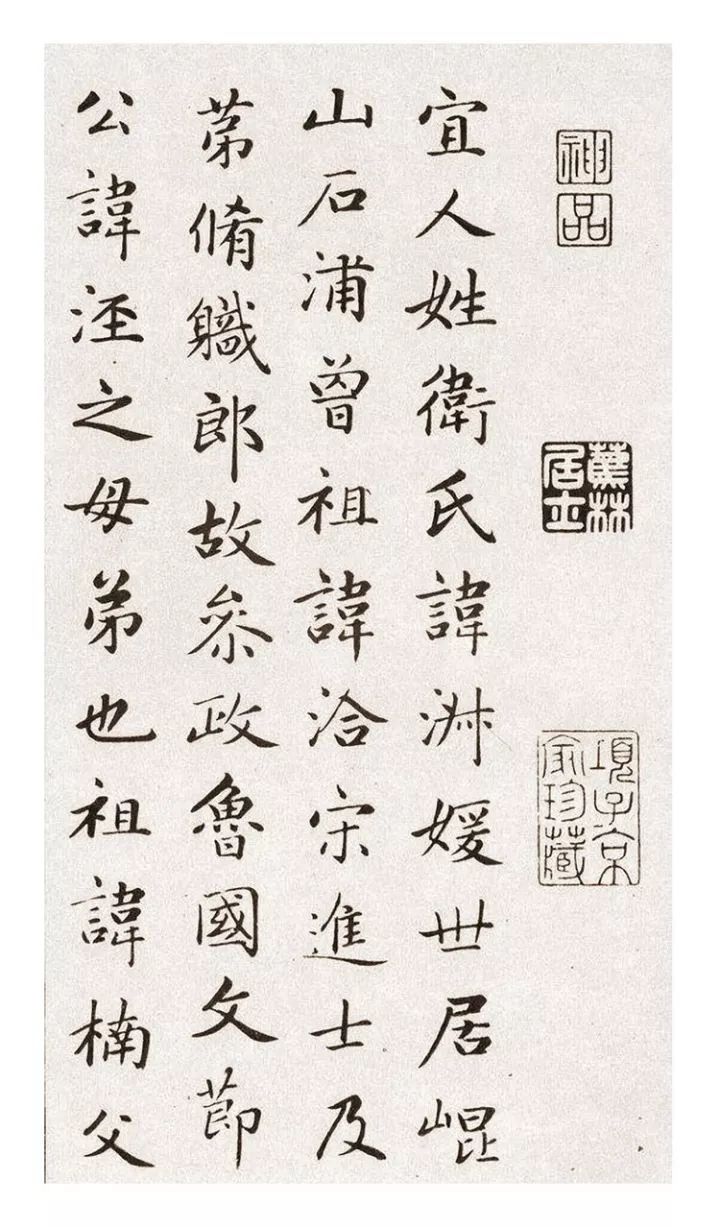 神品
蕉林居士
項子京家珍藏
宜人姓衛氏諱淑媛世居崐
山石浦曾祖諱洽宋進士及
苐脩職郎故叅政魯國文莭
公諱涇之母弟也祖諱楠父